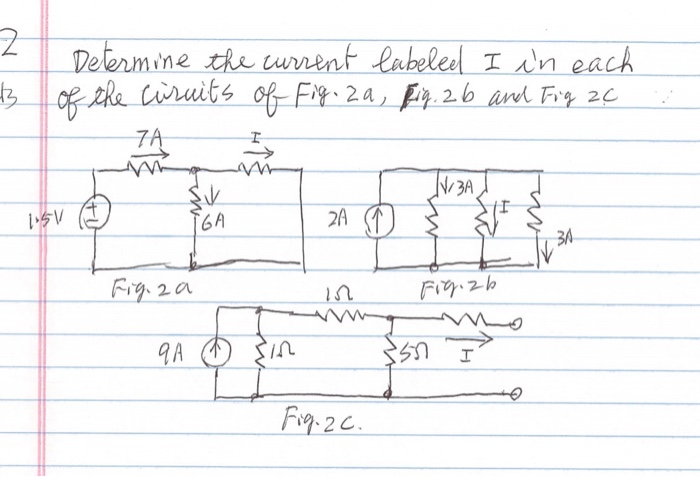 2
Determine the current labeled I in each
of the circuits of Fig. 2a, Fig. 2b and Fig 2C
7A
I
6A
1.5V
Fig. 2a
2A
3A
I
3A
Fig. 2b
1Ω
9A
1Ω
5Ω
I
Fig. 2C.